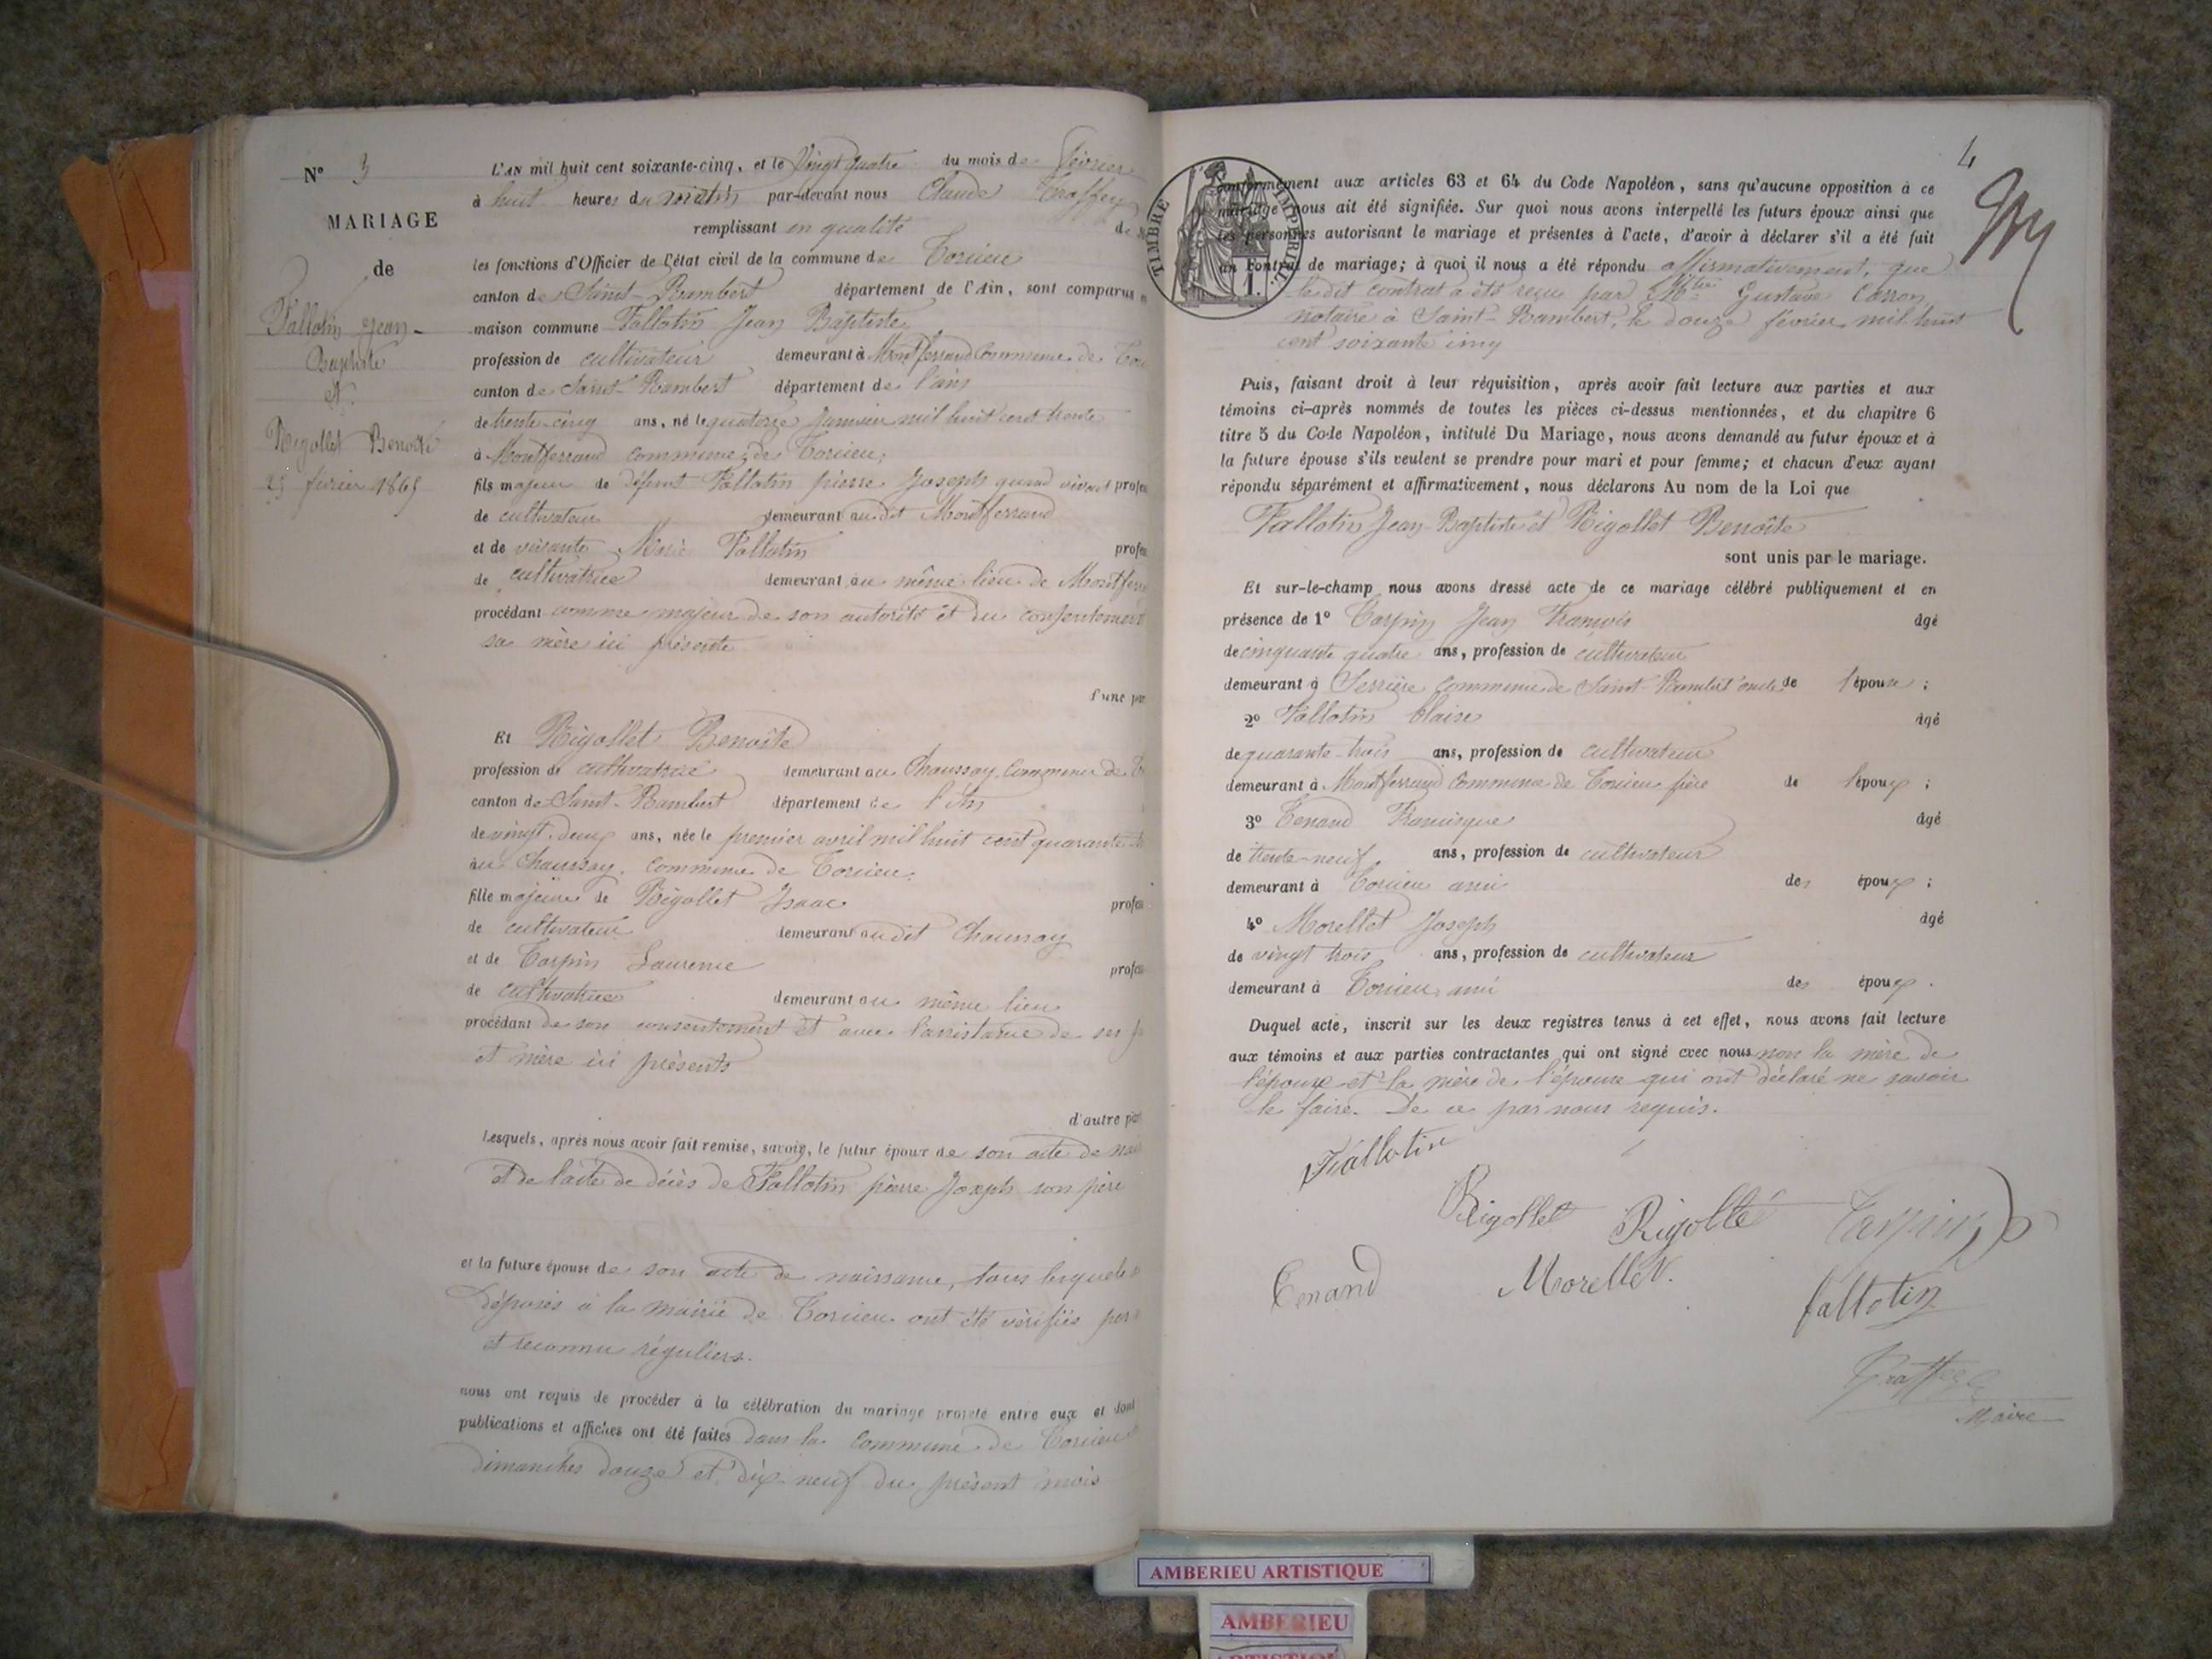 N° 3
MARIAGE
de
Fallotin Jean-
Baptiste
et
Rigollet Benoite
février 1865
L'AN mil huit cent soixante-cinq, et le Vingt quatre du mois de février
à huit heures du matin par-devant nous Claude
remplissant en qualité de
les fonctions d'Officier de l'état civil de la commune de Torcieu
canton de Saint-Rambert département de l'Ain, sont comparus
maison commune Fallotin Jean Baptiste
profession de cultivateur demeurant à Montferrand Commune de
canton de Saint-Rambert département de l'ain
de trente-cinq ans, né le quatorze Janvier mil huit cent trente
à Montferrand commune de Torcieu,
fils majeur de défunt Fallotin pierre Joseph quand vivait
de cultivateur demeurant audit Montferrand
et de vivante Marie Fallotin
de cultivatrice demeurant au même lieu de
procédant comme majeur de son autorité et du consentement
sa mère ici présente
l'une
Et Rigollet Benoîte
profession de cultivatrice demeurant au Chaussay, Commune de
canton de Saint-Rambert département de l'Ain
de vingt-deux ans, née le premier avril mil huit cent quarante
au Chaussay, commune de Torcieu,
fille majeure de Rigollet Isaac
de cultivateur demeurant audit Chaussay
et de Carpin Laurence
de cultivatrice demeurant au même lieu
procédant de son consentement et avec l'assistance de ses
et mère ici présents
d'autre
Lesquels, après nous avoir fait remise, savoir, le futur époux de son acte de
et de l'acte de décès de Fallotin pierre Joseph son père
et la future épouse de son acte de naissance, tous lesquels
Déposés à la mairie de Torcieu ont été vérifiés par
et reconnu réguliers.
nous ont requis de procéder à la célébration du mariage projeté entre eux et dont
publications et affiches ont été faites dans la Commune de Torcieu
dimanches douze et dix-neuf du présent mois
4
TIMBRE IMPÉRIAL
1.
conformément aux articles 63 et 64 du Code Napoléon, sans qu'aucune opposition à ce
mariage nous ait été signifiée. Sur quoi nous avons interpellé les futurs époux ainsi que
les personnes autorisant le mariage et présentes à l'acte, d'avoir à déclarer s'il a été fait
un contrat de mariage; à quoi il nous a été répondu affirmativement, que
le dit contrat a été reçu par Gustave Carron
notaire à Saint-Rambert, le douze février mil huit
cent soixante cinq
Puis, faisant droit à leur réquisition, après avoir fait lecture aux parties et aux
témoins ci-après nommés de toutes les pièces ci-dessus mentionnées, et du chapitre 6
titre 5 du Code Napoléon, intitulé Du Mariage, nous avons demandé au futur époux et à
la future épouse s'ils veulent se prendre pour mari et pour femme; et chacun d'eux ayant
répondu séparément et affirmativement, nous déclarons Au nom de la Loi que
Fallotin Jean-Baptiste et Rigollet Benoîte
sont unis par le mariage.
Et sur-le-champ nous avons dressé acte de ce mariage célébré publiquement et en
présence de 1° Carpin Jean François âgé
de cinquante quatre ans, profession de cultivateur
demeurant à Serrière Commune de Saint-Rambert oncle de l'épouse;
2° Fallotin Claise âgé
de quarante-trois ans, profession de cultivateur
demeurant à Montferrand Commune de Torcieu frère de l'époux;
3° Tenand Francisque âgé
de trente-neuf ans, profession de cultivateur
demeurant à Torcieu ami des époux;
4° Morellet Joseph âgé
de vingt trois ans, profession de cultivateur
demeurant à Torcieu, ami des époux.
Duquel acte, inscrit sur les deux registres tenus à cet effet, nous avons fait lecture
aux témoins et aux parties contractantes qui ont signé avec nous non la mère de
l'époux et la mère de l'épouse qui ont déclaré ne savoir
le faire. De ce par nous requis.
Fallotin
Rigollet Rigolté Carpin
Tenand Morellet
fallotin
Maire
AMBERIEU ARTISTIQUE
AMBERIEU
ARTISTIQUE